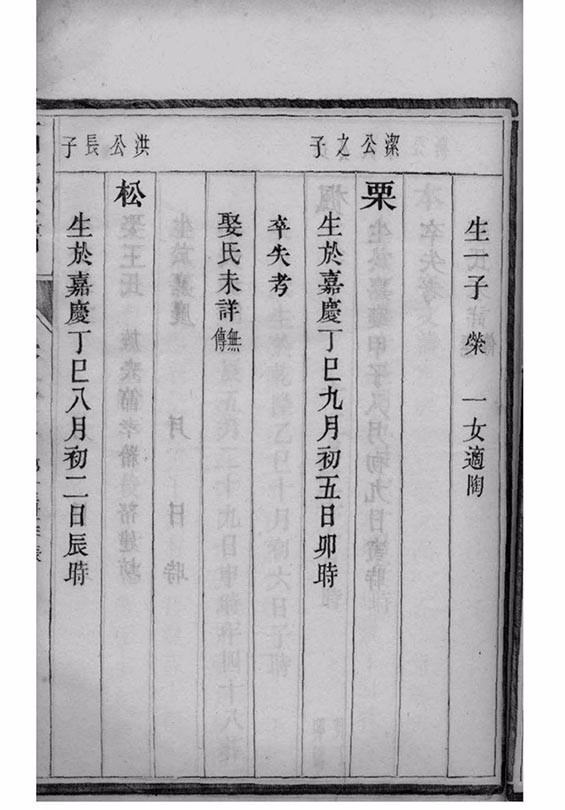 生一子榮 一女適陶
潔公之子
栗
生於嘉慶丁巳九月初五日卯時
卒失考
娶氏未詳無傳
洪公長子
松
生於嘉慶丁巳八月初二日辰時